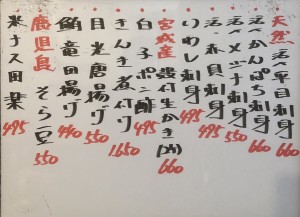 天然 活〆平目刺身 660
活〆かんぱち刺身 660
活〆メジナ刺身 550
貝刺身 495
いわし刺身 495
宮城産 殻付生かき(2ケ) 660
白子ポン酢 495
きんき煮付け 1650
目光唐揚げ 550
鮪竜田揚げ 440
鹿児島 そら豆 550
米ナス田楽 495